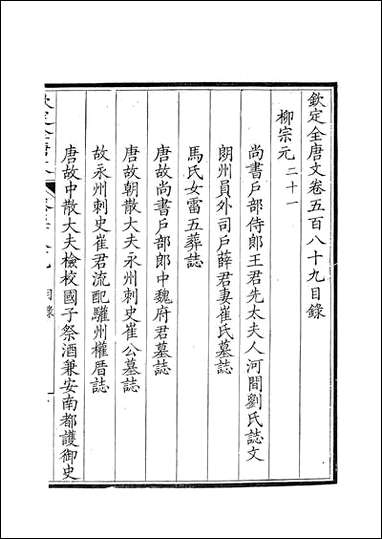 欽定全唐文卷五百八十九目錄
柳宗元二十一
尚書戶部侍郎王君先太夫人河間劉氏誌文
朗州員外司戶薛君妻崔氏墓誌
馬氏女雷五葬誌
唐故尚書戶部郎中魏府君墓誌
唐故朝散大夫永州刺史崔公墓誌
故永州刺史崔君流配驩州權厝誌
唐故中散大夫檢校國子祭酒兼安南都護御史
欽定全唐文
目錄